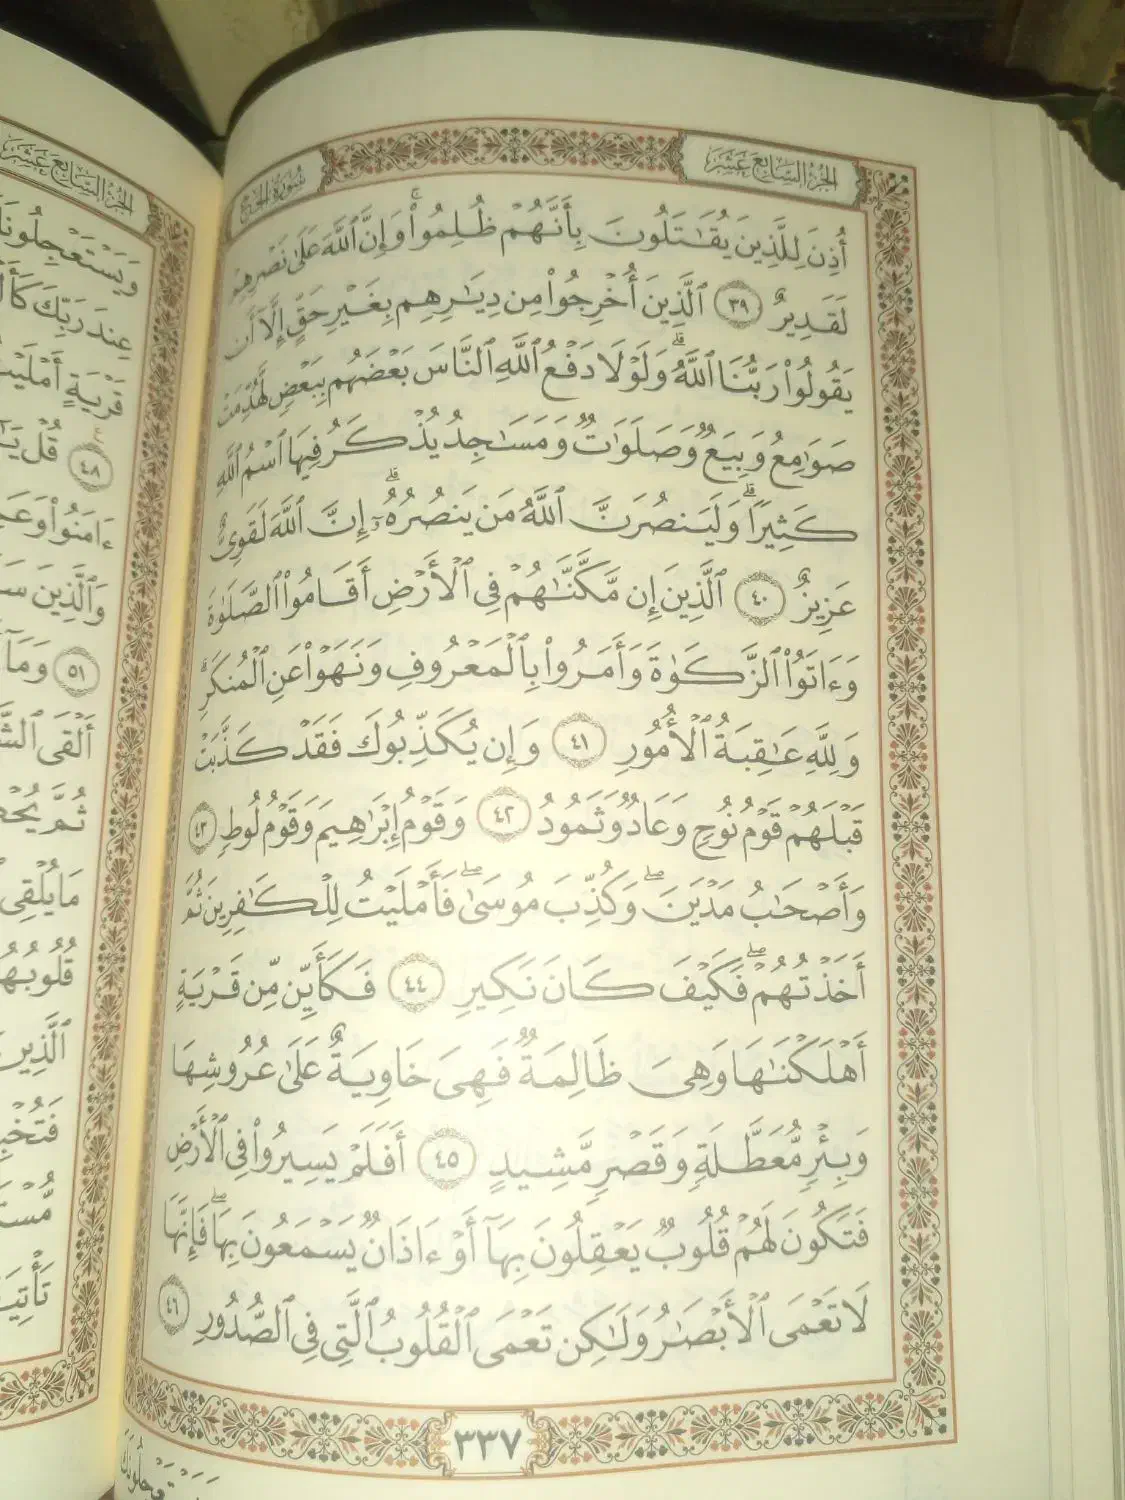 الجزء السابع عشر
سورة الحج
أُذِنَ لِلَّذِينَ يُقَٰتَلُونَ بِأَنَّهُمْ ظُلِمُوا۟ ۚ وَإِنَّ ٱللَّهَ عَلَىٰ نَصْرِهِمْ
لَقَدِيرٌ ٣٩ ٱلَّذِينَ أُخْرِجُوا۟ مِن دِيَٰرِهِم بِغَيْرِ حَقٍّ إِلَّآ أَن
يَقُولُوا۟ رَبُّنَا ٱللَّهُ ۗ وَلَوْلَا دَفْعُ ٱللَّهِ ٱلنَّاسَ بَعْضَهُم بِبَعْضٍ لَّهُدِّمَتْ
صَوَٰمِعُ وَبِيَعٌ وَصَلَوَٰتٌ وَمَسَٰجِدُ يُذْكَرُ فِيهَا ٱسْمُ ٱللَّهِ
كَثِيرًا ۗ وَلَيَنصُرَنَّ ٱللَّهُ مَن يَنصُرُهُۥٓ ۗ إِنَّ ٱللَّهَ لَقَوِىٌّ
عَزِيزٌ ٤٠ ٱلَّذِينَ إِن مَّكَّنَّٰهُمْ فِى ٱلْأَرْضِ أَقَامُوا۟ ٱلصَّلَوٰةَ
وَءَاتَوُا۟ ٱلزَّكَوٰةَ وَأَمَرُوا۟ بِٱلْمَعْرُوفِ وَنَهَوْا۟ عَنِ ٱلْمُنكَرِ ۗ
وَلِلَّهِ عَٰقِبَةُ ٱلْأُمُورِ ٤١ وَإِن يُكَذِّبُوكَ فَقَدْ كَذَّبَتْ
قَبْلَهُمْ قَوْمُ نُوحٍ وَعَادٌ وَثَمُودُ ٤٢ وَقَوْمُ إِبْرَٰهِيمَ وَقَوْمُ لُوطٍ ٤٣
وَأَصْحَٰبُ مَدْيَنَ ۖ وَكُذِّبَ مُوسَىٰ ۖ فَأَمْلَيْتُ لِلْكَٰفِرِينَ ثُمَّ
أَخَذْتُهُمْ ۖ فَكَيْفَ كَانَ نَكِيرِ ٤٤ فَكَأَيِّن مِّن قَرْيَةٍ
أَهْلَكْنَٰهَا وَهِىَ ظَالِمَةٌ فَهِىَ خَاوِيَةٌ عَلَىٰ عُرُوشِهَا
وَبِئْرٍ مُّعَطَّلَةٍ وَقَصْرٍ مَّشِيدٍ ٤٥ أَفَلَمْ يَسِيرُوا۟ فِى ٱلْأَرْضِ
فَتَكُونَ لَهُمْ قُلُوبٌ يَعْقِلُونَ بِهَآ أَوْ ءَاذَانٌ يَسْمَعُونَ بِهَا ۖ فَإِنَّهَا
لَا تَعْمَى ٱلْأَبْصَٰرُ وَلَٰكِن تَعْمَى ٱلْقُلُوبُ ٱلَّتِى فِى ٱلصُّدُورِ ٤٦
٣٣٧
وَيَسْتَعْجِلُونَكَ
الجزء السابع عشر
عِندَ رَبِّكَ
قَرْيَةٍ
٤٨ قُلْ
ءَامَنُوا۟
وَٱلَّذِينَ
٥١ وَمَآ
أَلْقَى
ثُمَّ
مَا يُلْقِى
ٱلَّذِينَ